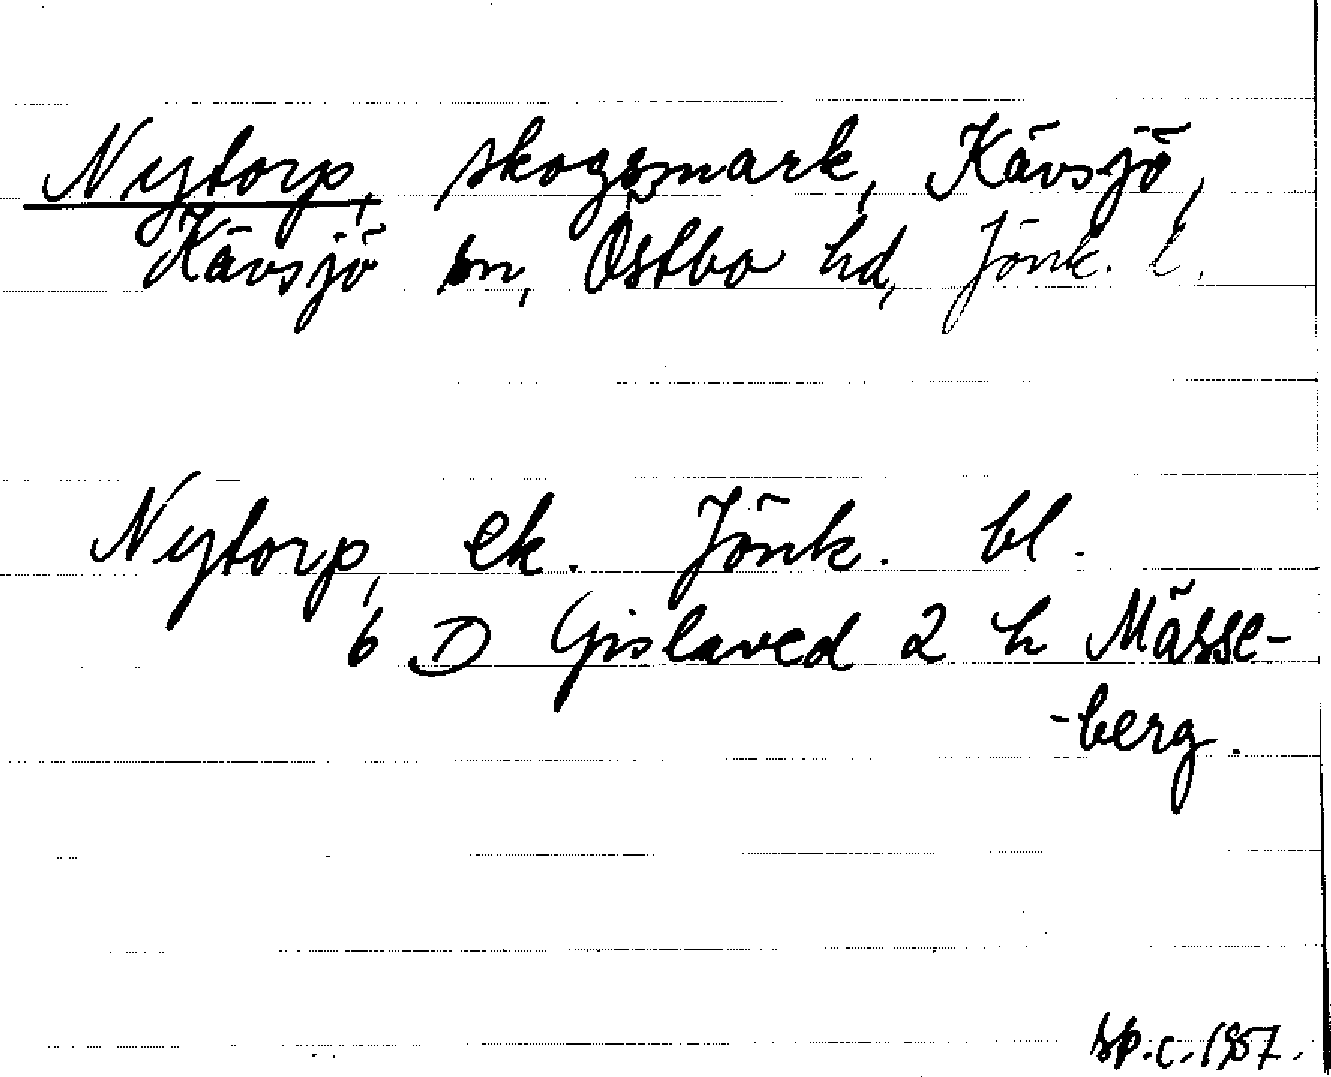 Nytorp, skogsmark, Kävsjö,
Kävsjö sn, Östbo hd, Jönk. l.
Nytorp, ek. Jönk. bl.
6 D Gislaved 2 h Mässe-
-berg.
sp.c. 1957.